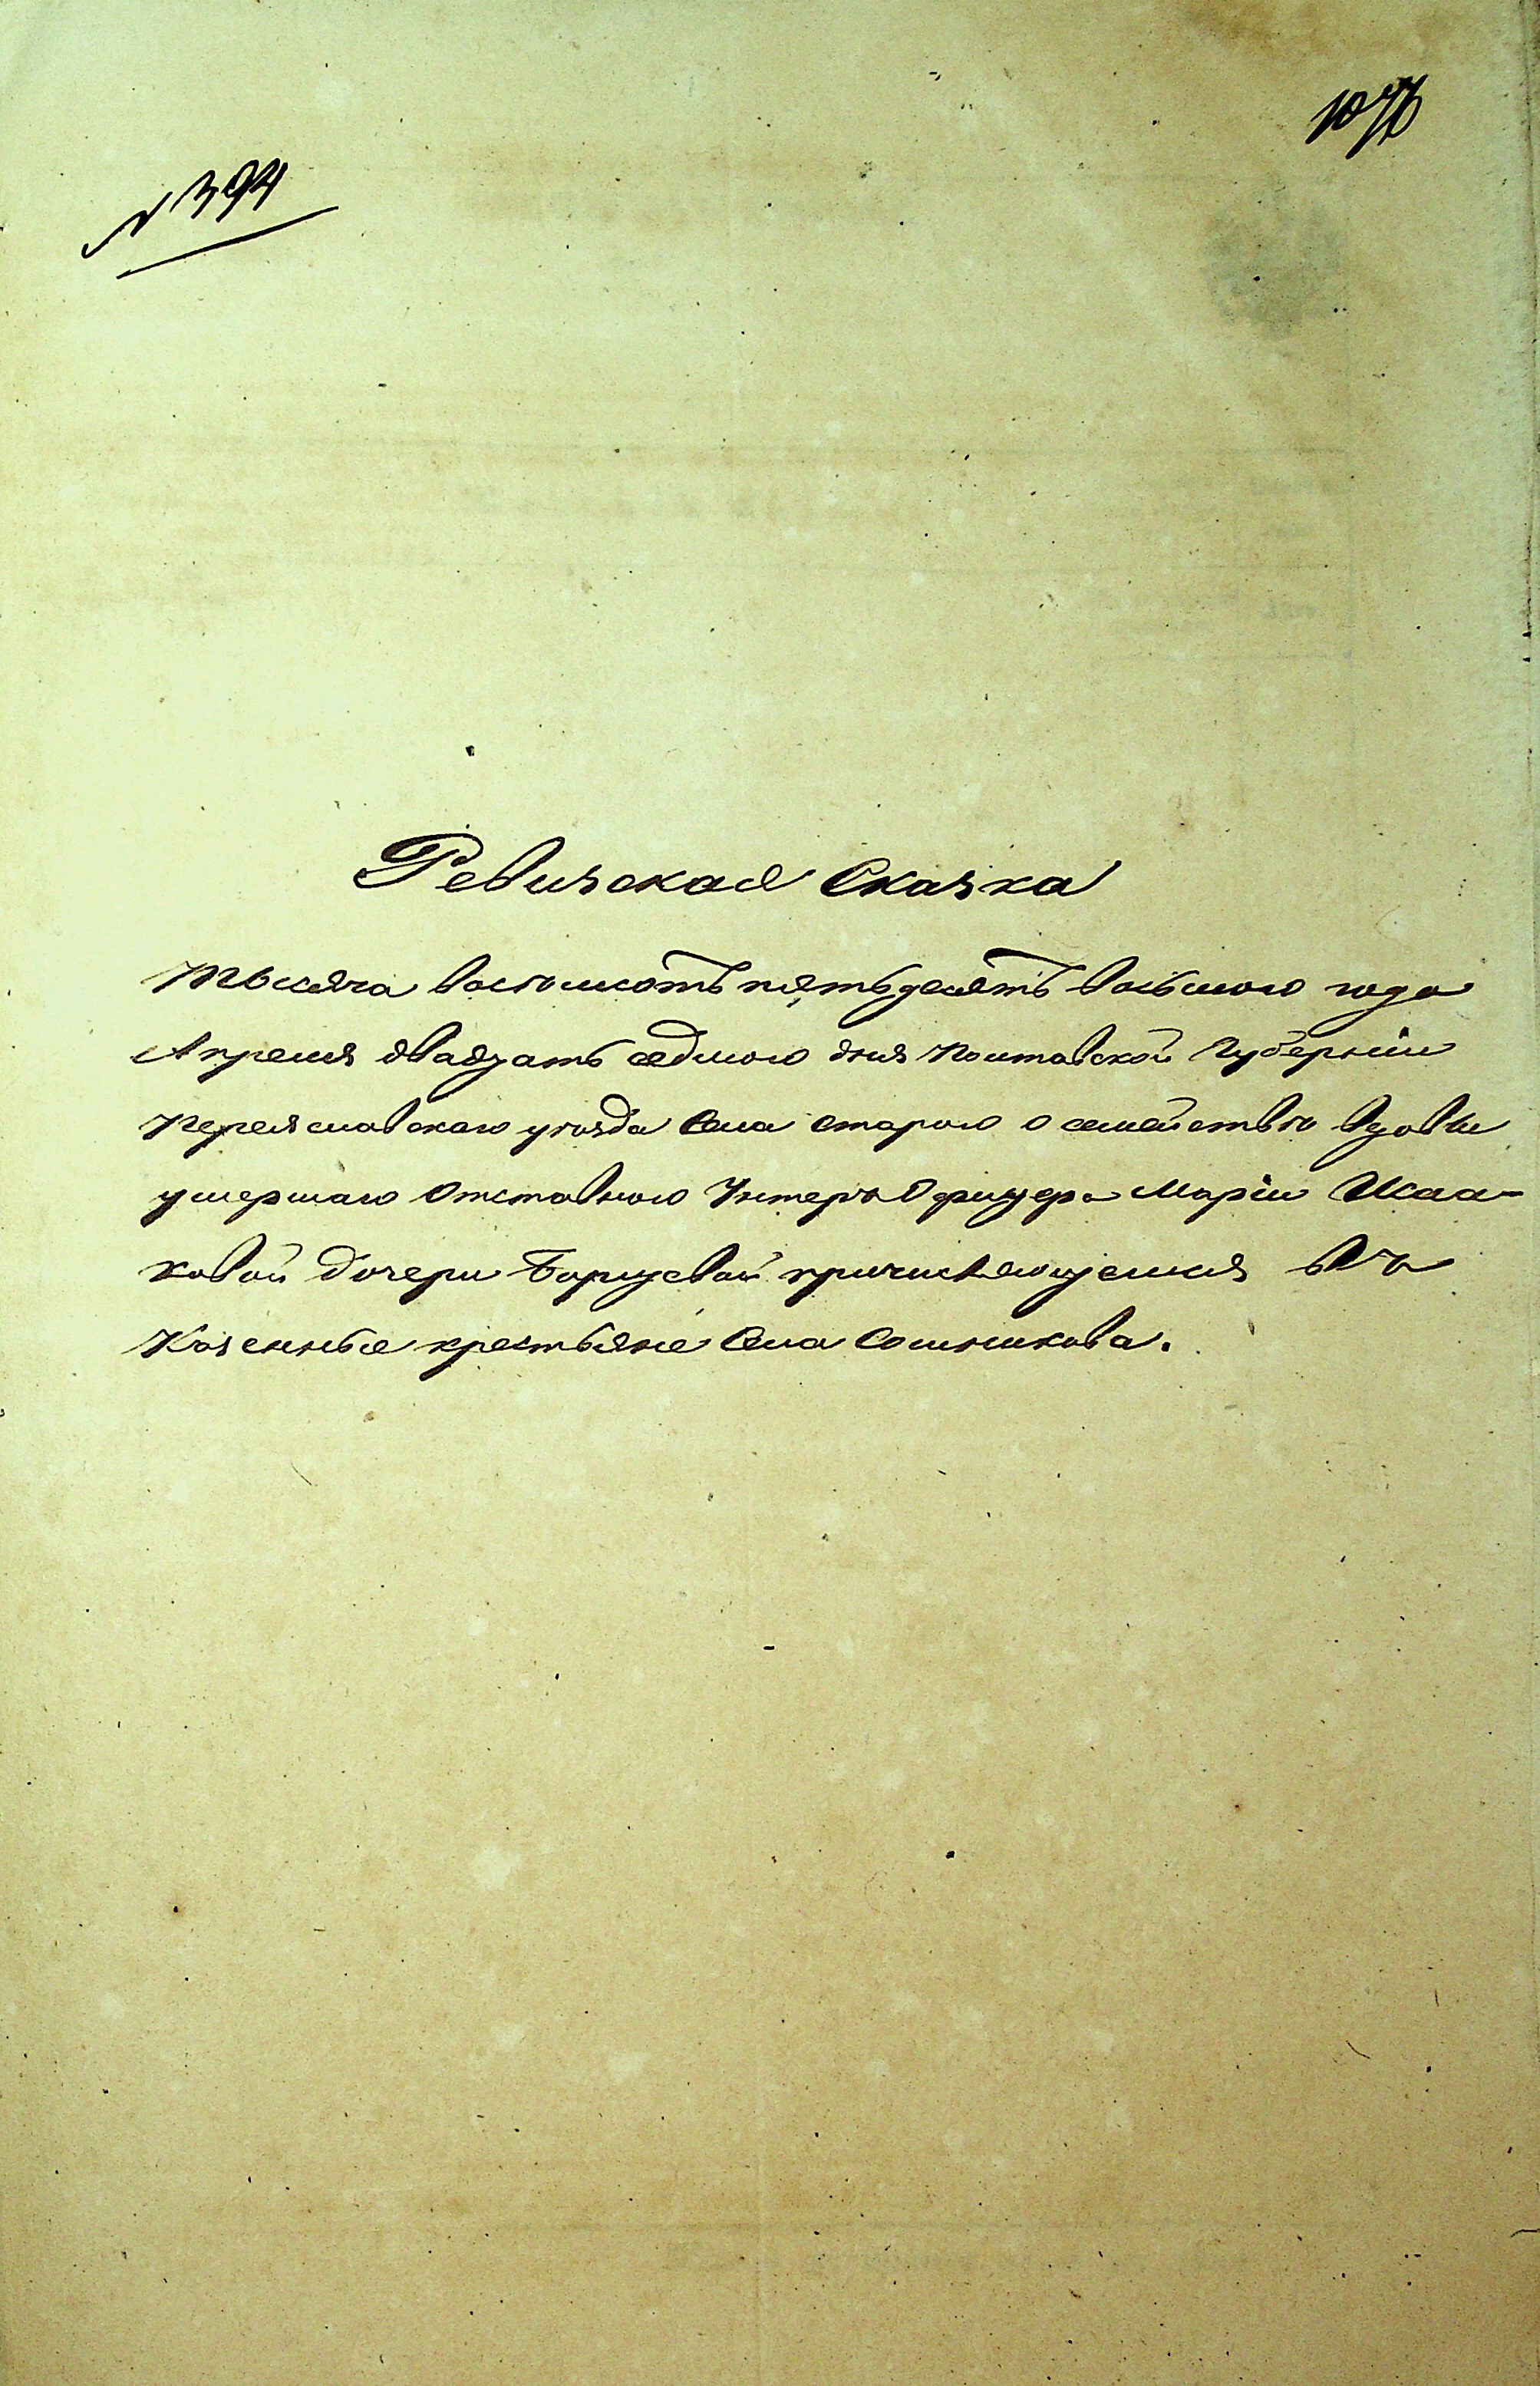 1076
№ 394
Ревизская Сказка
Тысяча восемсотъ пятьдесятъ восьмого года
Апреля двадцать седмого дня Полтавской Губерніи
Переяславскаго уѣзда Села Старого о семействѣ вдовы
умершаго Отставного Унтеръ Офицера Маріи Исаа-
ковой дочери причисляющемся въ
Казенные крестьяне Села Сошникова.